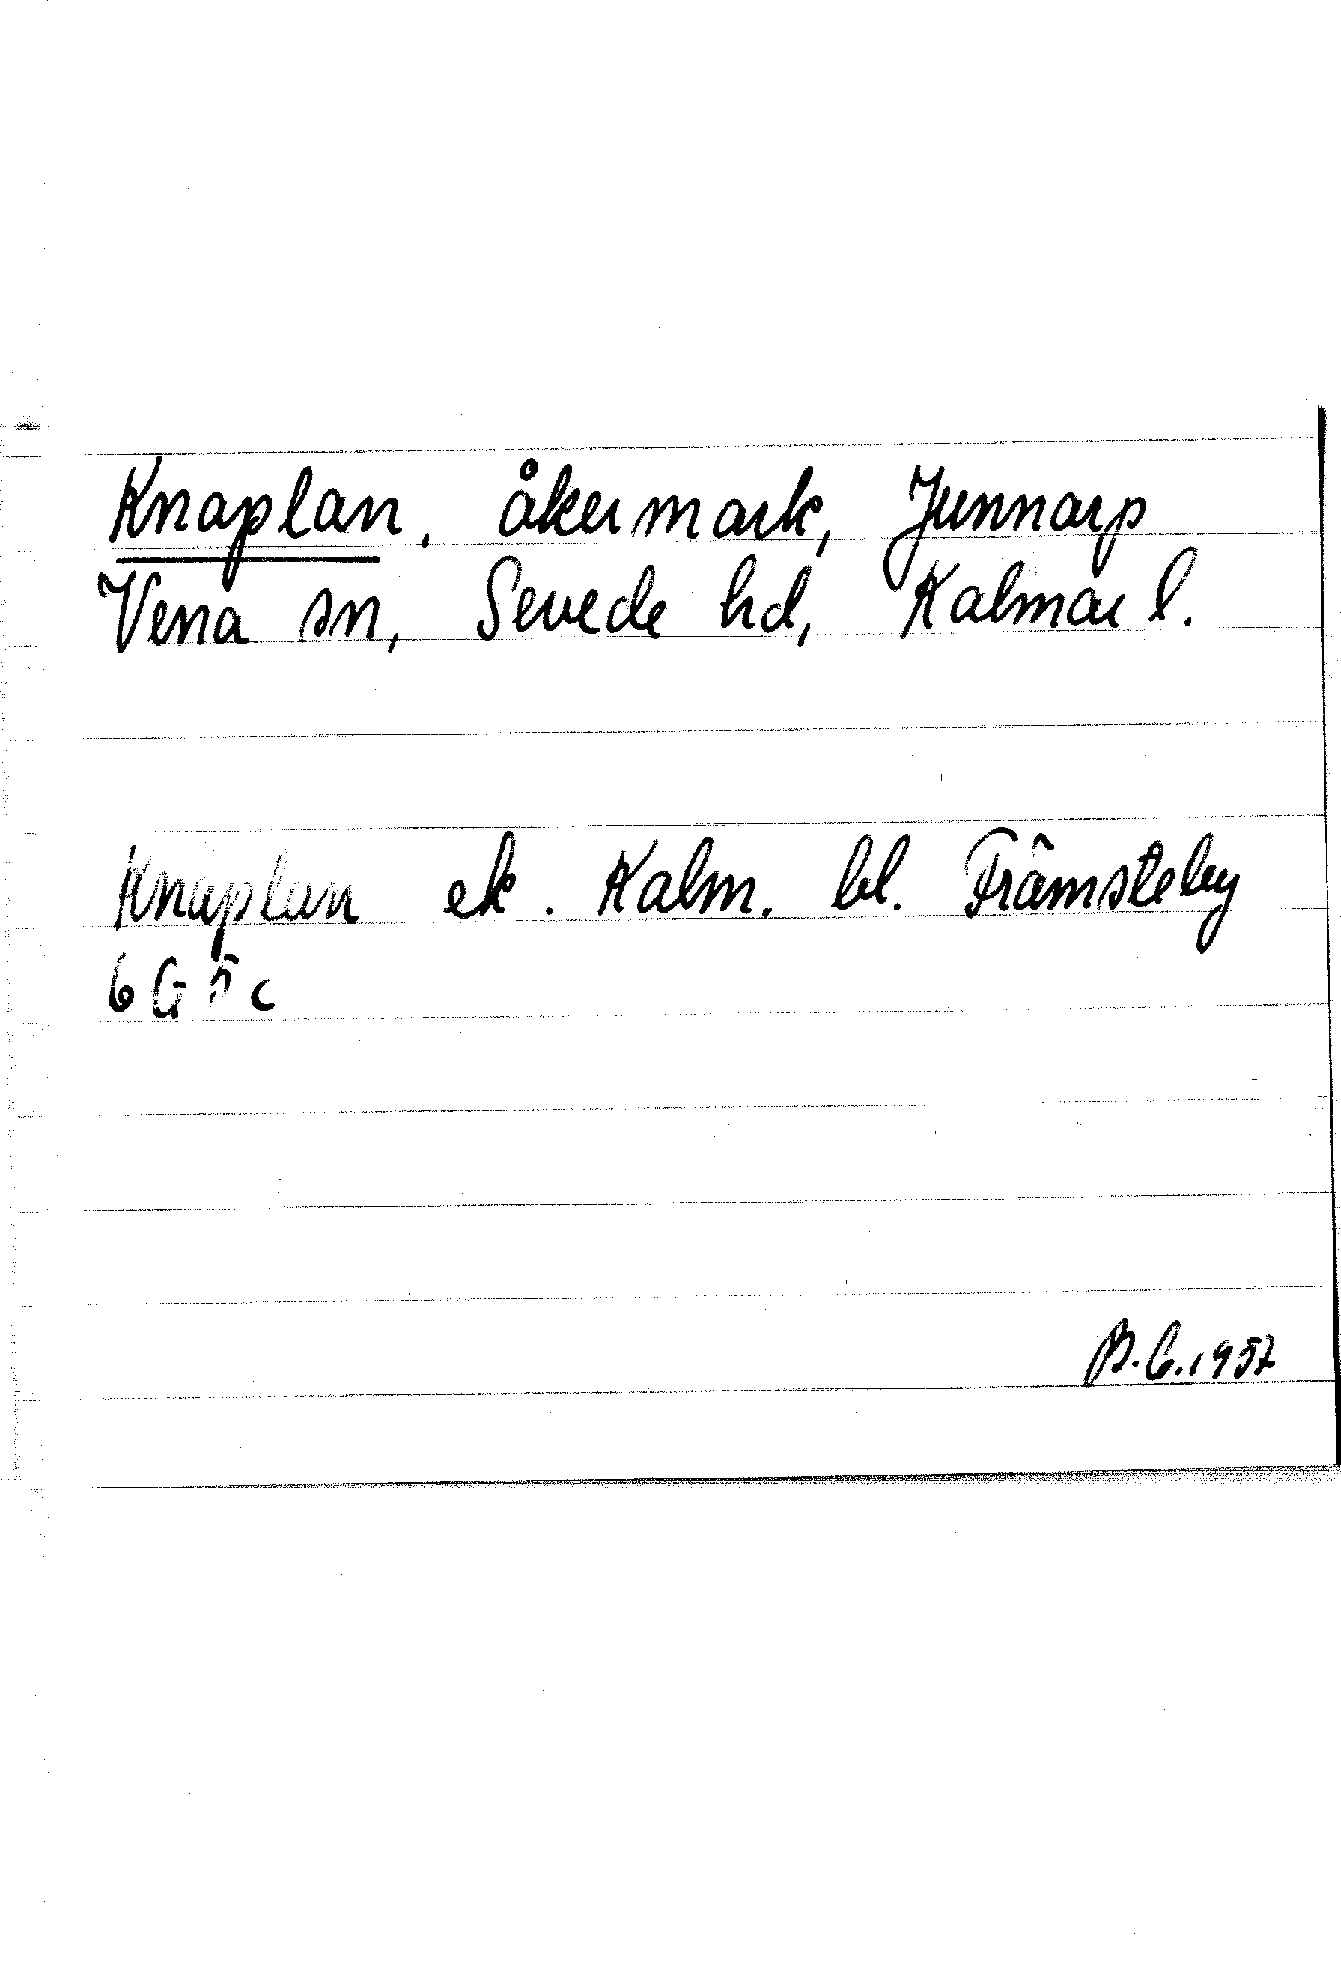 Knaplan, åkermark, Junnarp
Vena sn, Sevede hd, Kalmar l.
Knaplan ek. Kalm. bl. Främsteby
6 G 5 c
B.C. 1957